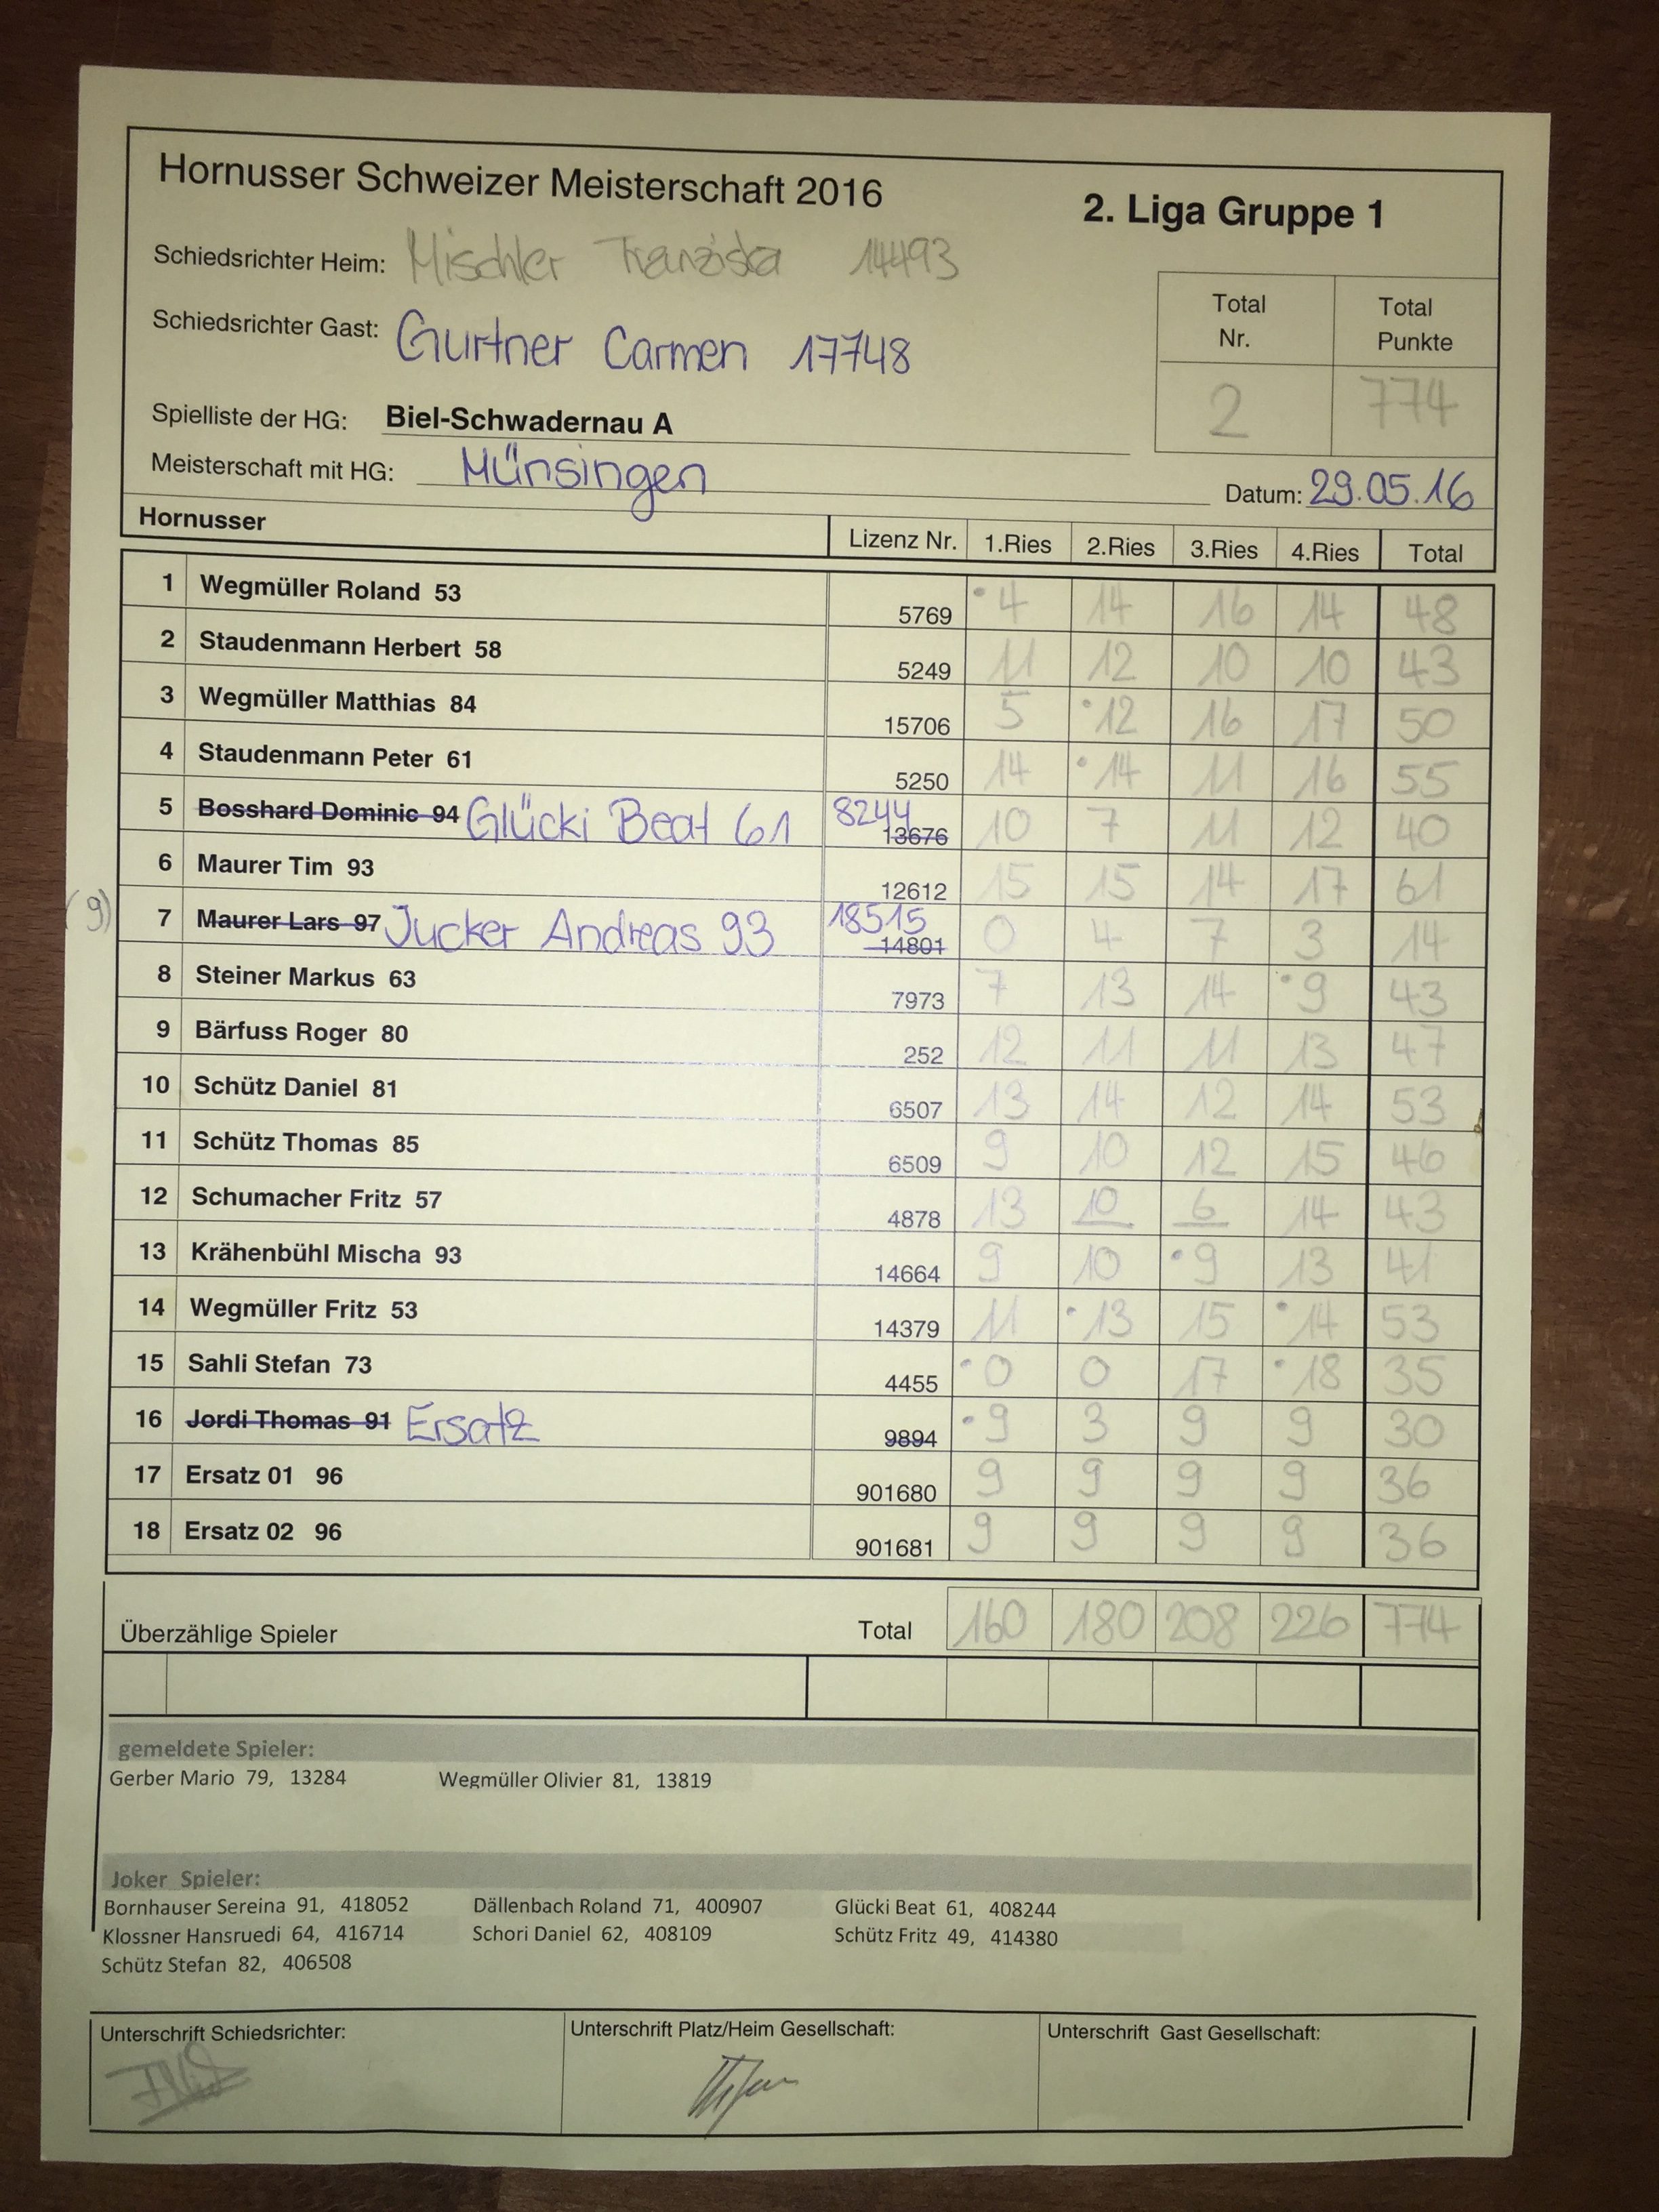 Hornusser Schweizer Meisterschaft 2016
2. Liga Gruppe 1
Schiedsrichter Heim: Mischler Franziska 14493
Schiedsrichter Gast: Gurtner Carmen 17748
Total Nr. Total Punkte
2 774
Spielliste der HG: Biel-Schwadernau A
Meisterschaft mit HG: Münsingen Datum: 29.05.16
Hornusser Lizenz Nr. 1.Ries 2.Ries 3.Ries 4.Ries Total
1 Wegmüller Roland 53 5769 •4 14 16 14 48
2 Staudenmann Herbert 58 5249 11 12 10 10 43
3 Wegmüller Matthias 84 15706 5 •12 16 17 50
4 Staudenmann Peter 61 5250 14 •14 11 16 55
5 Bosshard Dominic 94 Glücki Beat 61 8244 13676 10 7 11 12 40
6 Maurer Tim 93 12612 15 15 14 17 61
(9) 7 Maurer Lars 97 Jucker Andreas 93 18515 14801 0 4 7 3 14
8 Steiner Markus 63 7973 7 13 14 •9 43
9 Bärfuss Roger 80 252 12 11 11 13 47
10 Schütz Daniel 81 6507 13 14 12 14 53
11 Schütz Thomas 85 6509 9 10 12 15 46
12 Schumacher Fritz 57 4878 13 10 6 14 43
13 Krähenbühl Mischa 93 14664 9 10 •9 13 41
14 Wegmüller Fritz 53 14379 11 •13 15 •14 53
15 Sahli Stefan 73 4455 •0 0 17 •18 35
16 Jordi Thomas 91 Ersatz 9894 •9 3 9 9 30
17 Ersatz 01 96 901680 9 9 9 9 36
18 Ersatz 02 96 901681 9 9 9 9 36
Überzählige Spieler Total 160 180 208 226 774
gemeldete Spieler:
Gerber Mario 79, 13284 Wegmüller Olivier 81, 13819
Joker Spieler:
Bornhauser Sereina 91, 418052 Dällenbach Roland 71, 400907 Glücki Beat 61, 408244
Klossner Hansruedi 64, 416714 Schori Daniel 62, 408109 Schütz Fritz 49, 414380
Schütz Stefan 82, 406508
Unterschrift Schiedsrichter: Unterschrift Platz/Heim Gesellschaft: Unterschrift Gast Gesellschaft: